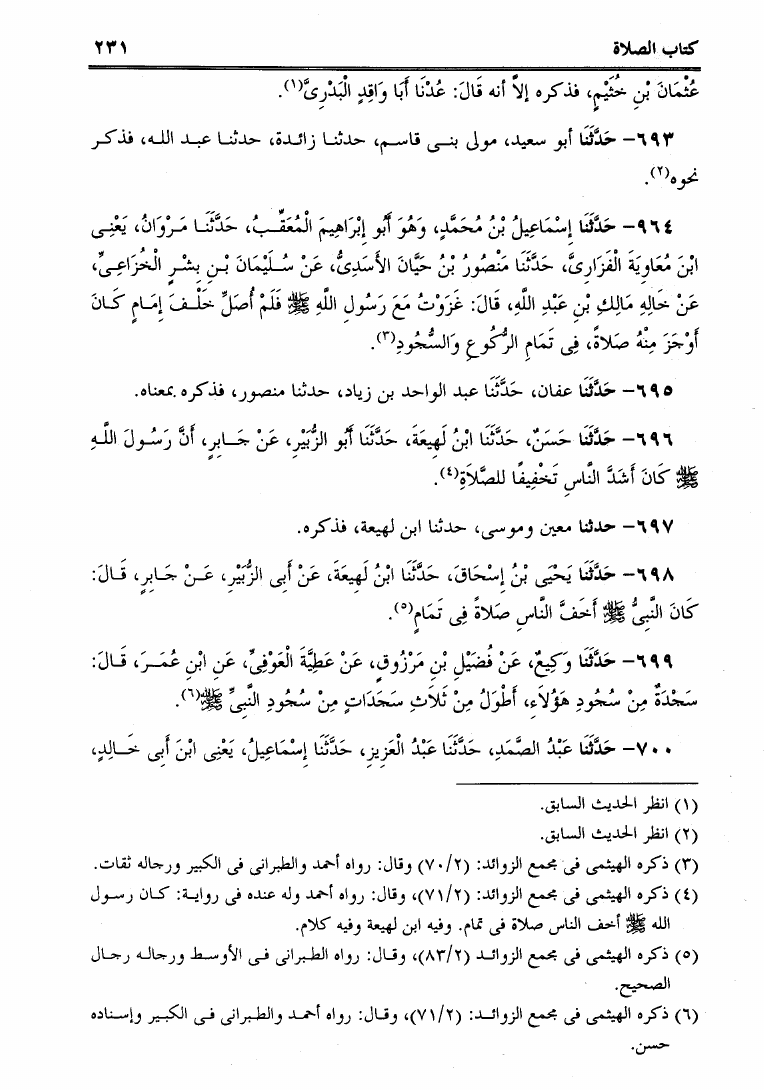 كتاب الصلاة ٢٣١
عُثْمَانَ بْنِ خُثَيْمٍ، فذكره إلاَّ أنه قَالَ: عُدْنَا أَبَا وَاقِدٍ الْبَدْرِىَّ(١).
٦٩٣- حَدَّثَنَا أبو سعيد، مولى بنى قاسم، حدثنا زائدة، حدثنا عبد الله، فذكر
نحوه(٢).
٩٦٤- حَدَّثَنَا إِسْمَاعِيلُ بْنُ مُحَمَّدٍ، وَهُوَ أَبُو إِبْرَاهِيمَ الْمُعَقِّبُ، حَدَّثَنَا مَرْوَانُ، يَعْنِى
ابْنَ مُعَاوِيَةَ الْفَزَارِىَّ، حَدَّثَنَا مَنْصُورُ بْنُ حَيَّانَ الأَسَدِىُّ، عَنْ سُلَيْمَانَ بْنِ بِشْرٍ الْخُزَاعِىِّ،
عَنْ خَالِهِ مَالِكِ بْنِ عَبْدِ اللَّهِ، قَالَ: غَزَوْتُ مَعَ رَسُولِ اللَّهِ ﷺ فَلَمْ أُصَلِّ خَلْفَ إِمَامٍ كَانَ
أَوْجَزَ مِنْهُ صَلاَةً، فِى تَمَامِ الرُّكُوعِ وَالسُّجُودِ(٣).
٦٩٥- حَدَّثَنَا عفان، حَدَّثَنَا عبد الواحد بن زياد، حدثنا منصور، فذكره بمعناه.
٦٩٦- حَدَّثَنَا حَسَنٌ، حَدَّثَنَا ابْنُ لَهِيعَةَ، حَدَّثَنَا أَبُو الزُّبَيْرِ، عَنْ جَابِرٍ، أَنَّ رَسُولَ اللَّهِ
ﷺ كَانَ أَشَدَّ النَّاسِ تَخْفِيفًا للصَّلاَةِ(٤).
٦٩٧- حدثنا معين وموسى، حدثنا ابن لهيعة، فذكره.
٦٩٨- حَدَّثَنَا يَحْيَى بْنُ إِسْحَاقَ، حَدَّثَنَا ابْنُ لَهِيعَةَ، عَنْ أَبِى الزُّبَيْرِ، عَنْ جَابِرٍ، قَالَ:
كَانَ النَّبِىُّ ﷺ أَخَفَّ النَّاسِ صَلاَةً فِى تَمَامٍ(٥).
٦٩٩- حَدَّثَنَا وَكِيعٌ، عَنْ فُضَيْلِ بْنِ مَرْزُوقٍ، عَنْ عَطِيَّةَ الْعَوْفِىِّ، عَنِ ابْنِ عُمَرَ، قَالَ:
سَجْدَةٌ مِنْ سُجُودِ هَؤُلاَءِ، أَطْوَلُ مِنْ ثَلاَثِ سَجَدَاتٍ مِنْ سُجُودِ النَّبِىِّ ﷺ(٦).
٧٠٠- حَدَّثَنَا عَبْدُ الصَّمَدِ، حَدَّثَنَا عَبْدُ الْعَزِيزِ، حَدَّثَنَا إِسْمَاعِيلُ، يَعْنِى ابْنَ أَبِى خَالِدٍ،
(١) انظر الحديث السابق.
(٢) انظر الحديث السابق.
(٣) ذكره الهيثمى فى مجمع الزوائد: (٧٠/٢) وقال: رواه أحمد والطبرانى فى الكبير ورجاله ثقات.
(٤) ذكره الهيثمى فى مجمع الزوائد: (٧١/٢)، وقال: رواه أحمد وله عنده فى رواية: كان رسول
الله ﷺ أخف الناس صلاة فى تمام. وفيه ابن لهيعة وفيه كلام.
(٥) ذكره الهيثمى فى مجمع الزوائد: (٨٣/٢)، وقال: رواه الطبرانى فى الأوسط ورجاله رجال
الصحيح.
(٦) ذكره الهيثمى فى مجمع الزوائد: (٧١/٢)، وقال: رواه أحمد والطبرانى فى الكبير وإسناده
حسن.